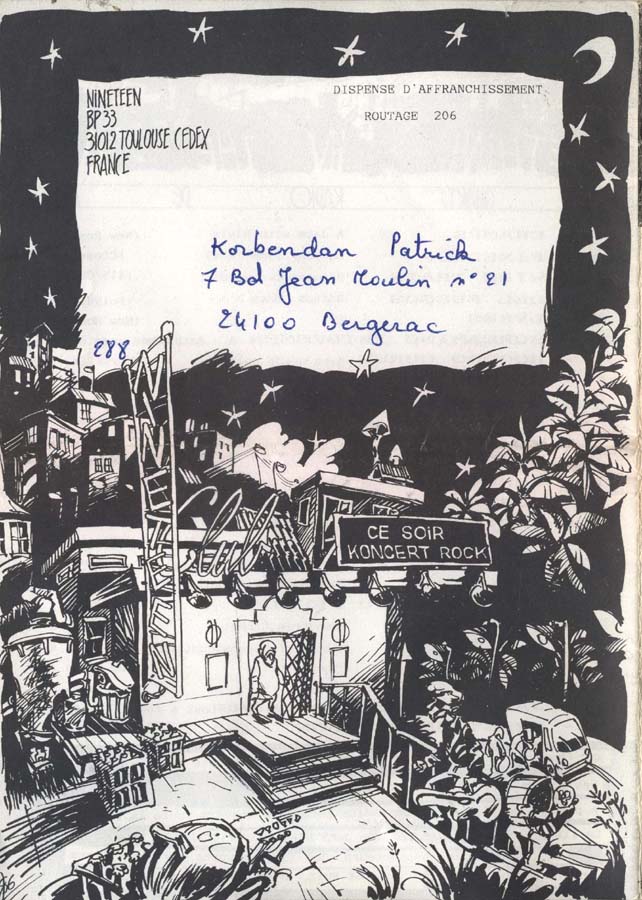 NINETEEN
BP 33
31012 TOULOUSE CEDEX
FRANCE
DISPENSE D'AFFRANCHISSEMENT
ROUTAGE 206
Korbendan Patrick
7 Bd Jean Moulin n° 21
24100 Bergerac
288
NINETEEN
Club
CE SOIR
KONCERT ROCK